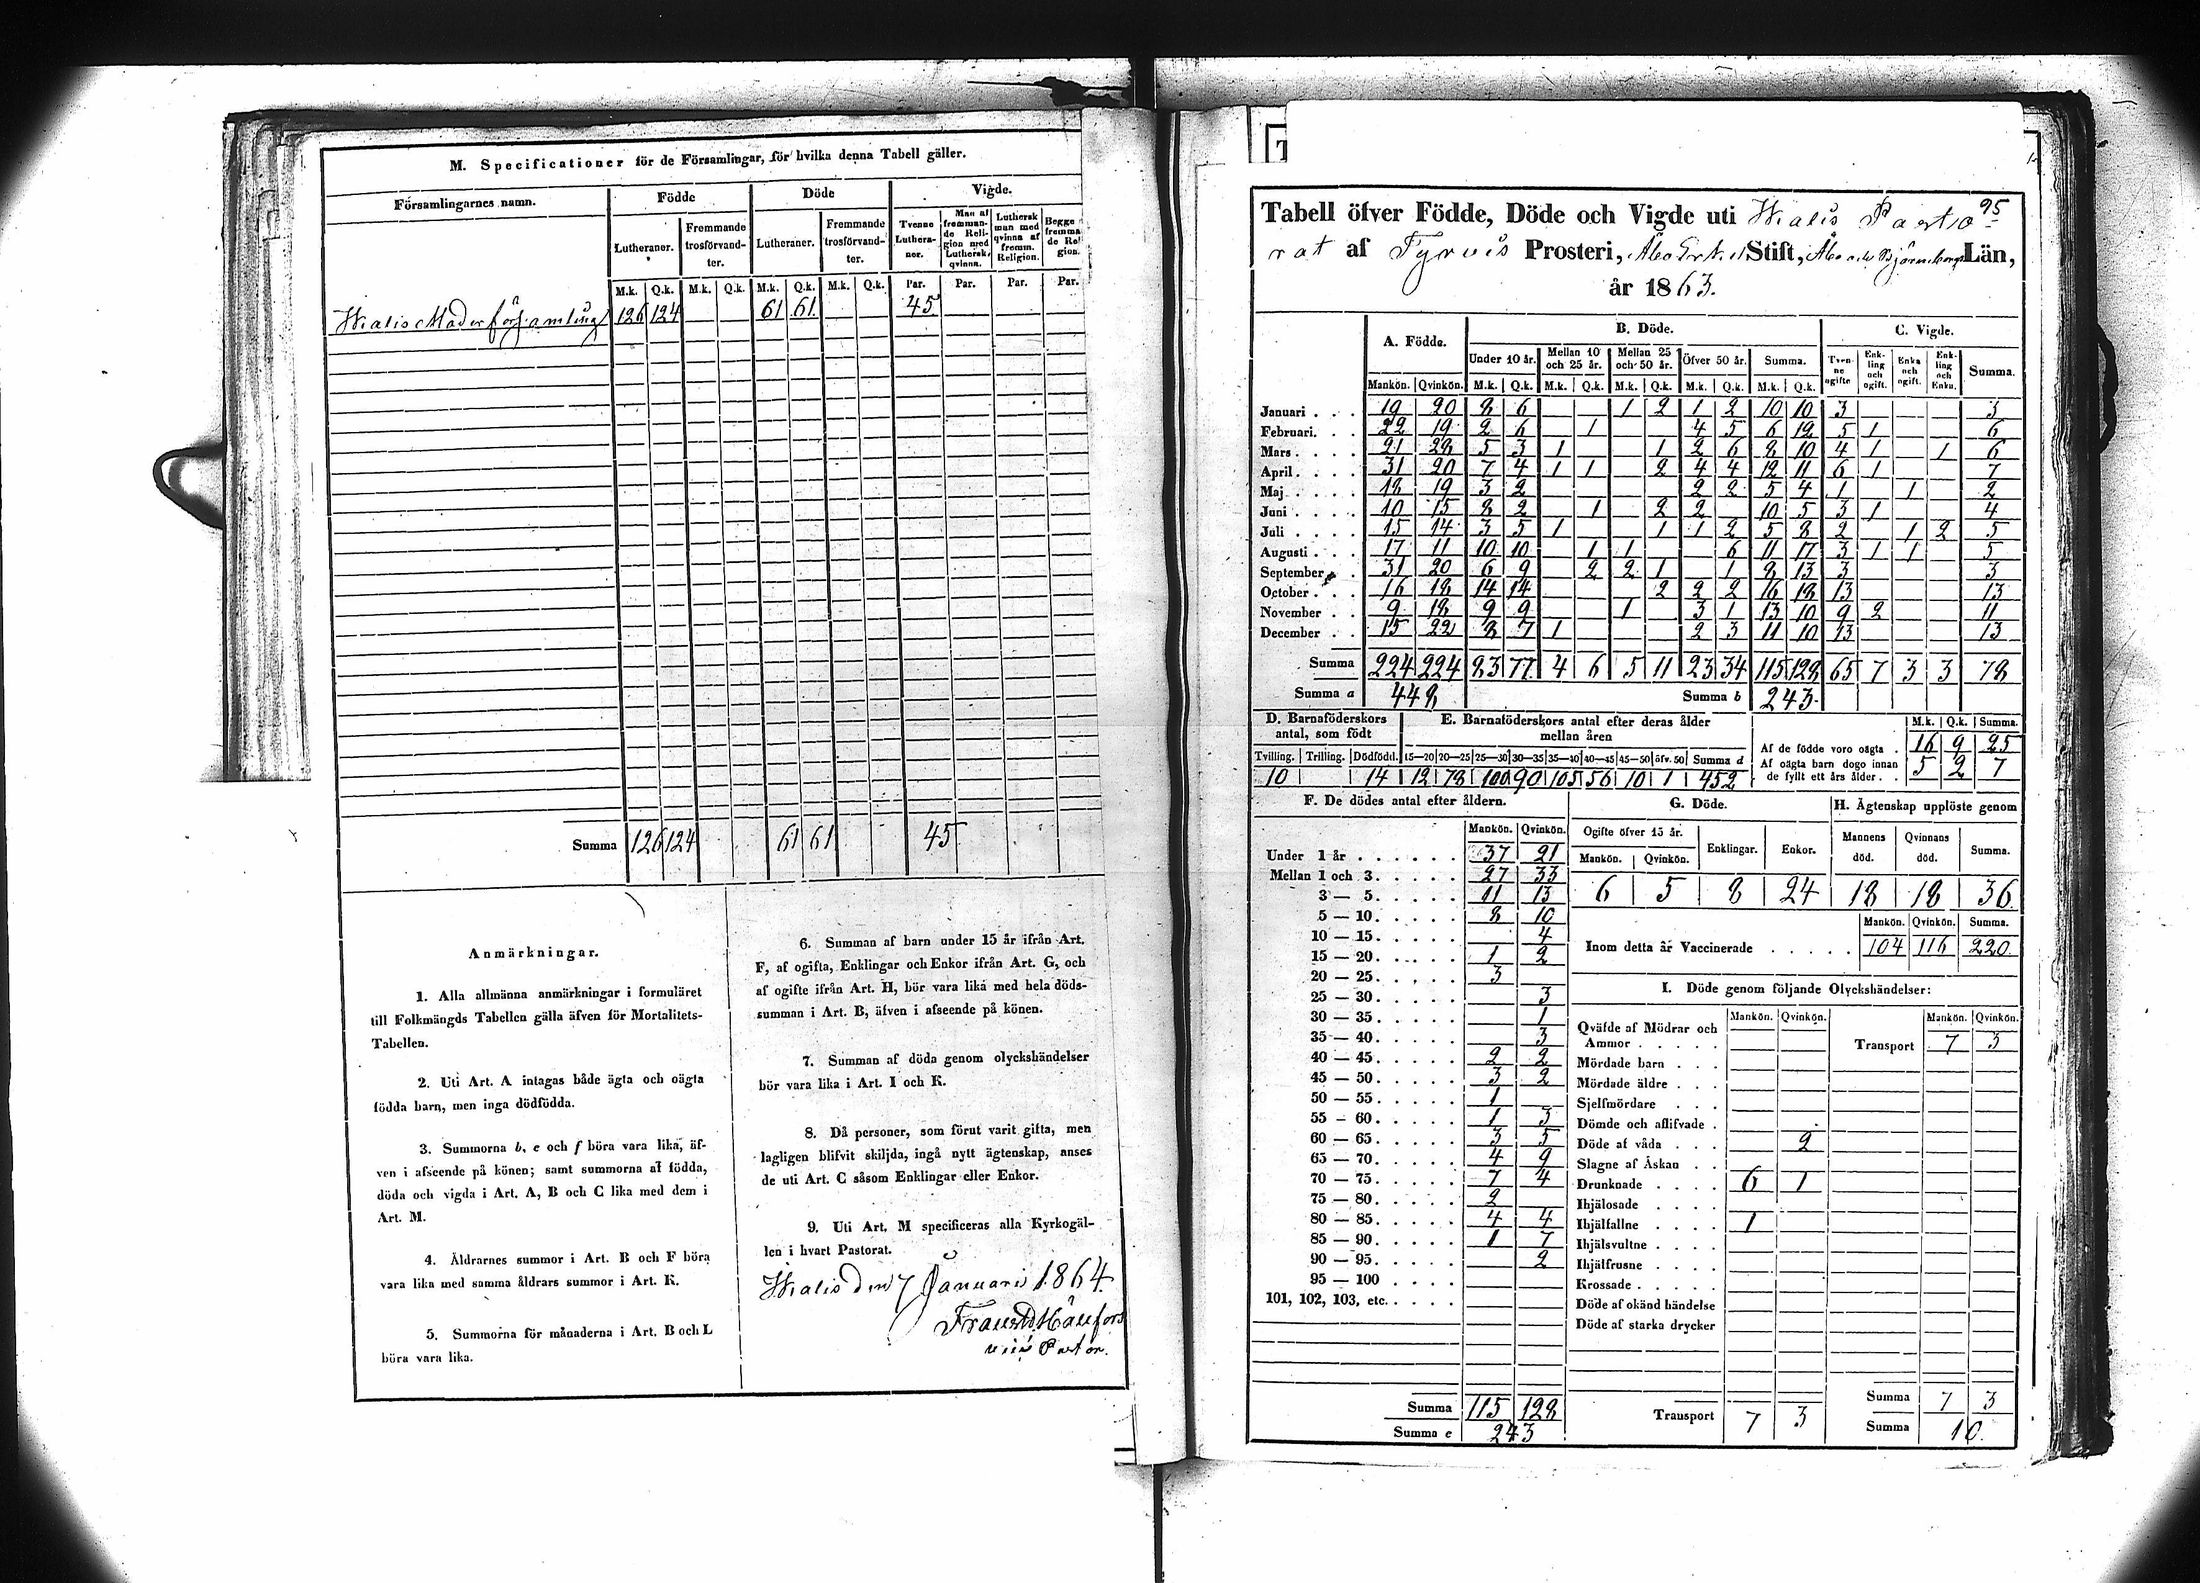 M. Specificationer för de Församlingar, för hvilka denna Tabell gäller.
Församlingarnes namn. Födde Döde Vigde.
Lutheraner. Fremmande trosförvandter. Lutheraner. Fremmande trosförvandter. Tvenne Lutheraner. Man af fremmande Religion med Luthersk qvinna. Luthersk man med qvinna af fremm. Religion. Begge fremmande Religion.
M.k. Q.k. M.k. Q.k. M.k. Q.k. M.k. Q.k. Par. Par. Par. Par.
126 124 61 61 45
Summa 126 124 61 61 45
Anmärkningar.
1. Alla allmänna anmärkningar i formuläret
till Folkmängds Tabellen gälla äfven för Mortalitets-
Tabellen.
2. Uti Art. A intagas både ägta och oägta
födda barn, men inga dödfödda.
3. Summorna b, e och f böra vara lika, äf-
ven i afseende på könen; samt summorna af födda,
döda och vigda i Art. A, B och C lika med dem i
Art. M.
4. Åldrarnes summor i Art. B och F böra
vara lika med samma åldrars summor i Art. K.
5. Summorna för månaderna i Art. B och L
böra vara lika.
6. Summan af barn under 15 år ifrån Art.
F, af ogifta, Enklingar och Enkor ifrån Art. G, och
af ogifte ifrån Art. H, bör vara lika med hela döds-
summan i Art. B, äfven i afseende på könen.
7. Summan af döda genom olyckshändelser
bör vara lika i Art. I och K.
8. Då personer, som förut varit gifta, men
lagligen blifvit skiljda, ingå nytt ägtenskap, anses
de uti Art. C såsom Enklingar eller Enkor.
9. Uti Art. M specificeras alla Kyrkogäl-
len i hvart Pastorat.
den 7 Januari 1864.
Pastor.
95
Tabell öfver Födde, Döde och Vigde uti Pasto
rat af Tyrvis Prosteri, Åbo Stift, Åbo och Björneborgs Län,
år 1863.
A. Födde. B. Döde. C. Vigde.
Under 10 år. Mellan 10 och 25 år. Mellan 25 och 50 år. Öfver 50 år. Summa. Tvenne ogifte Enkling och ogift. Enka och ogift. Enkling och Enka. Summa.
Mankön. Qvinkön. M.k. Q.k. M.k. Q.k. M.k. Q.k. M.k. Q.k. M.k. Q.k.
Januari 19 20 8 6 1 2 1 2 10 10 3 3
Februari. 22 19 2 6 1 4 5 6 12 5 1 6
Mars 21 28 5 3 1 1 2 6 8 10 4 1 1 6
April 31 20 7 4 1 1 2 4 4 12 11 6 1 7
Maj 18 19 3 2 2 2 5 4 1 1 2
Juni 10 15 8 2 1 2 2 10 5 3 1 4
Juli 15 14 3 5 1 1 1 2 5 8 2 1 2 5
Augusti 17 11 10 10 1 1 6 11 17 3 1 1 5
September 31 20 6 9 2 2 1 1 8 13 3 3
October 16 18 14 14 2 2 2 16 18 13 13
November 9 18 9 9 1 3 1 13 10 9 2 11
December 15 22 8 7 1 2 3 11 10 13 13
Summa 224 224 83 77 4 6 5 11 23 34 115 128 65 7 3 3 78
Summa a 448 Summa b 243.
D. Barnaföderskors antal, som födt
E. Barnaföderskors antal efter deras ålder mellan åren
M.k. Q.k. Summa.
Tvilling. Trilling. Dödfödd. 15—20 20—25 25—30 30—35 35—40 40—45 45—50 öfv. 50 Summa d
10 14 12 78 100 90 105 56 10 1 452
Af de födde voro oägta . 16 9 25
Af oägta barn dogo innan
de fyllt ett års ålder. 5 2 7
F. De dödes antal efter åldern.
Mankön. Qvinkön.
Under 1 år 37 21
Mellan 1 och 3. 27 33
3 — 5. 11 13
5 — 10. 8 10
10 — 15. 4
15 — 20. 1 2
20 — 25. 3
25 — 30. 3
30 — 35. 1
35 — 40. 3
40 — 45. 2 2
45 — 50. 3 2
50 — 55. 1
55 — 60. 1 3
60 — 65. 3 5
65 — 70. 4 9
70 — 75. 7 4
75 — 80. 2
80 — 85. 4 4
85 — 90. 1 7
90 — 95. 2
95 — 100
101, 102, 103, etc.
Summa 115 128
Summa e 243
G. Döde.
Ogifte öfver 15 år. Enklingar. Enkor.
Mankön. Qvinkön.
6 5 8 24
H. Ägtenskap upplöste genom
Mannens död. Qvinnans död. Summa.
18 18 36.
Mankön. Qvinkön. Summa.
Inom detta år Vaccinerade 104 116 220.
I. Döde genom följande Olyckshändelser:
Mankön. Qvinkön. Mankön. Qvinkön.
Qväfde af Mödrar och
Ammor
Transport 7 3
Mördade barn
Mördade äldre
Sjelfmördare
Dömde och aflifvade
Döde af våda 2
Slagne af Åskan
Drunknade 6 1
Ihjälosade
Ihjälfallne 1
Ihjälsvultne
Ihjälfrusne
Krossade
Döde af okänd händelse
Döde af starka drycker
Transport 7 3
Summa 7 3
Summa 10.